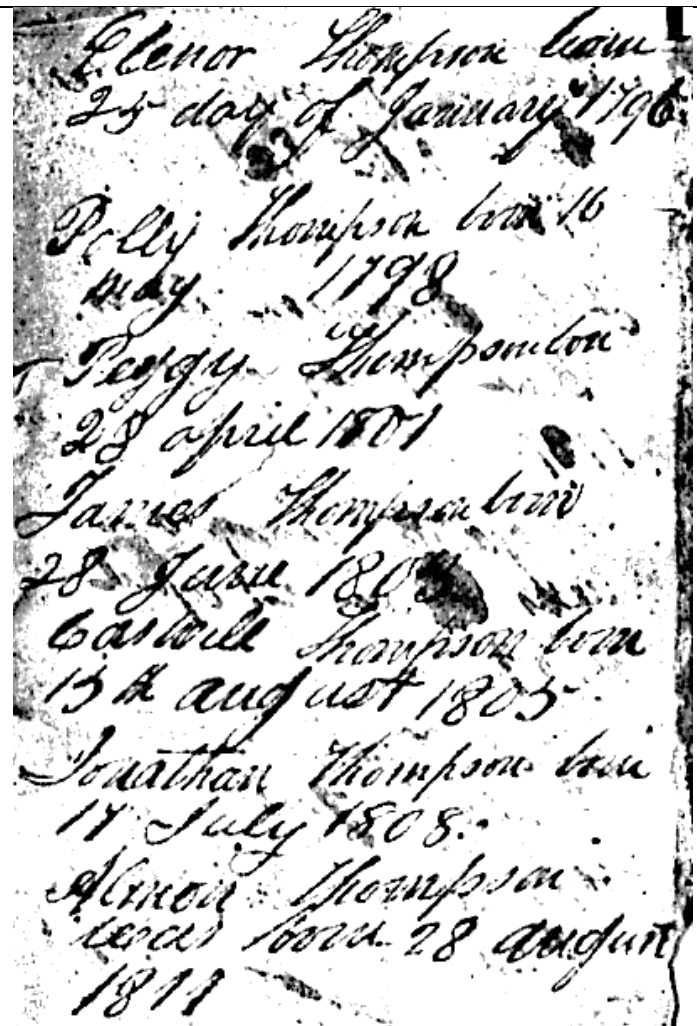 Elenor Thompson born
25 day of January 1796
Polly Thompson born 16
may 1798
Peggy Thompson born
28 april 1801
James Thompson born
28 June 1803
Caswell Thompson born
15th august 1805
Jonathan Thompson born
17 July 1808
Thompson
was born 28 august
1811